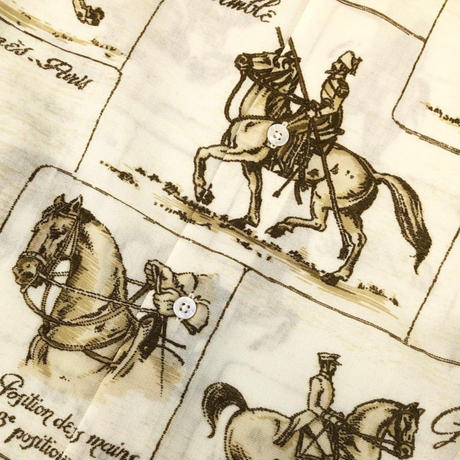 emblé
ès. Paris
Position des mains
3e position